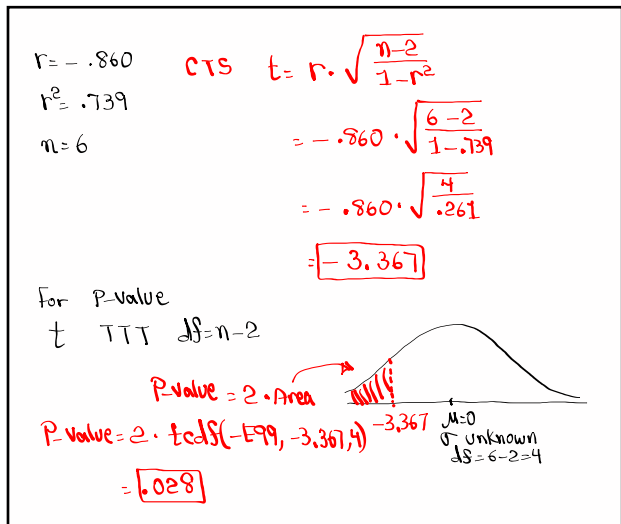 r = -.860
r² = .739
n = 6
CTS t = r · √((n-2)/(1-r²))
= -.860 · √((6-2)/(1-.739))
= -.860 · √(4/.261)
= -3.367
For P-value
t TTT df = n-2
P-value = 2 · Area
P-value = 2 · tcdf(-E99, -3.367, 4)
= .028
-3.367
μ=0
σ unknown
df = 6-2 = 4